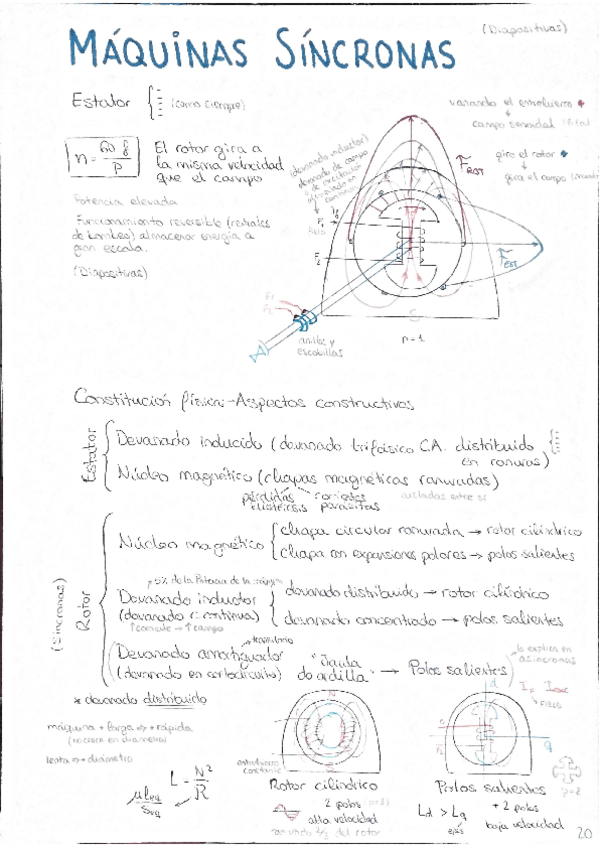 (Diapositivas)
MÁQUINAS SÍNCRONAS
Estator { (como siempre)
n = 60 f / p
El rotor gira a
la misma velocidad
que el campo
variando el entrehierro
campo senoidal
giro el rotor
gira el campo
(devanado inductor)
devanado de campo
o de excitación
F_ROT
F_EST
Potencia elevada
Funcionamiento reversible (centrales
de bombeo) almacenar energía a
gran escala.
(Diapositivas)
F1
F2
F1
F2
anillos y
escobillas
S
p=1
Constitución física - Aspectos constructivos
Estator
Devanado inducido (devanado trifásico C.A. distribuido
en ranuras)
Núcleo magnético (chapas magnéticas ranuradas)
pérdidas histéresis
corrientes parásitas
aisladas entre sí
(síncronas)
Rotor
Núcleo magnético
chapa circular ranurada → rotor cilíndrico
chapa con expansiones polares → polos salientes
5% de la Potencia de la máquina
Devanado inductor
(devanado c. continua)
↑corriente → ↑campo
devanado distribuido → rotor cilíndrico
devanado concentrado → polos salientes
Devanado amortiguador
(devanado en cortocircuito)
"Jaula
de ardilla"
→ Polos salientes
lo explica en
asíncronas
* devanado distribuido
máquina + larga ⇒ + rápida
lenta → diámetro
L = N² / R
entrehierro
constante
Rotor cilíndrico
2 polos
alta velocidad
ranurado 2/3 del rotor
d
q
FIELD
Polos salientes
Ld > Lq
ejes
+ 2 polos
baja velocidad
p=2
20